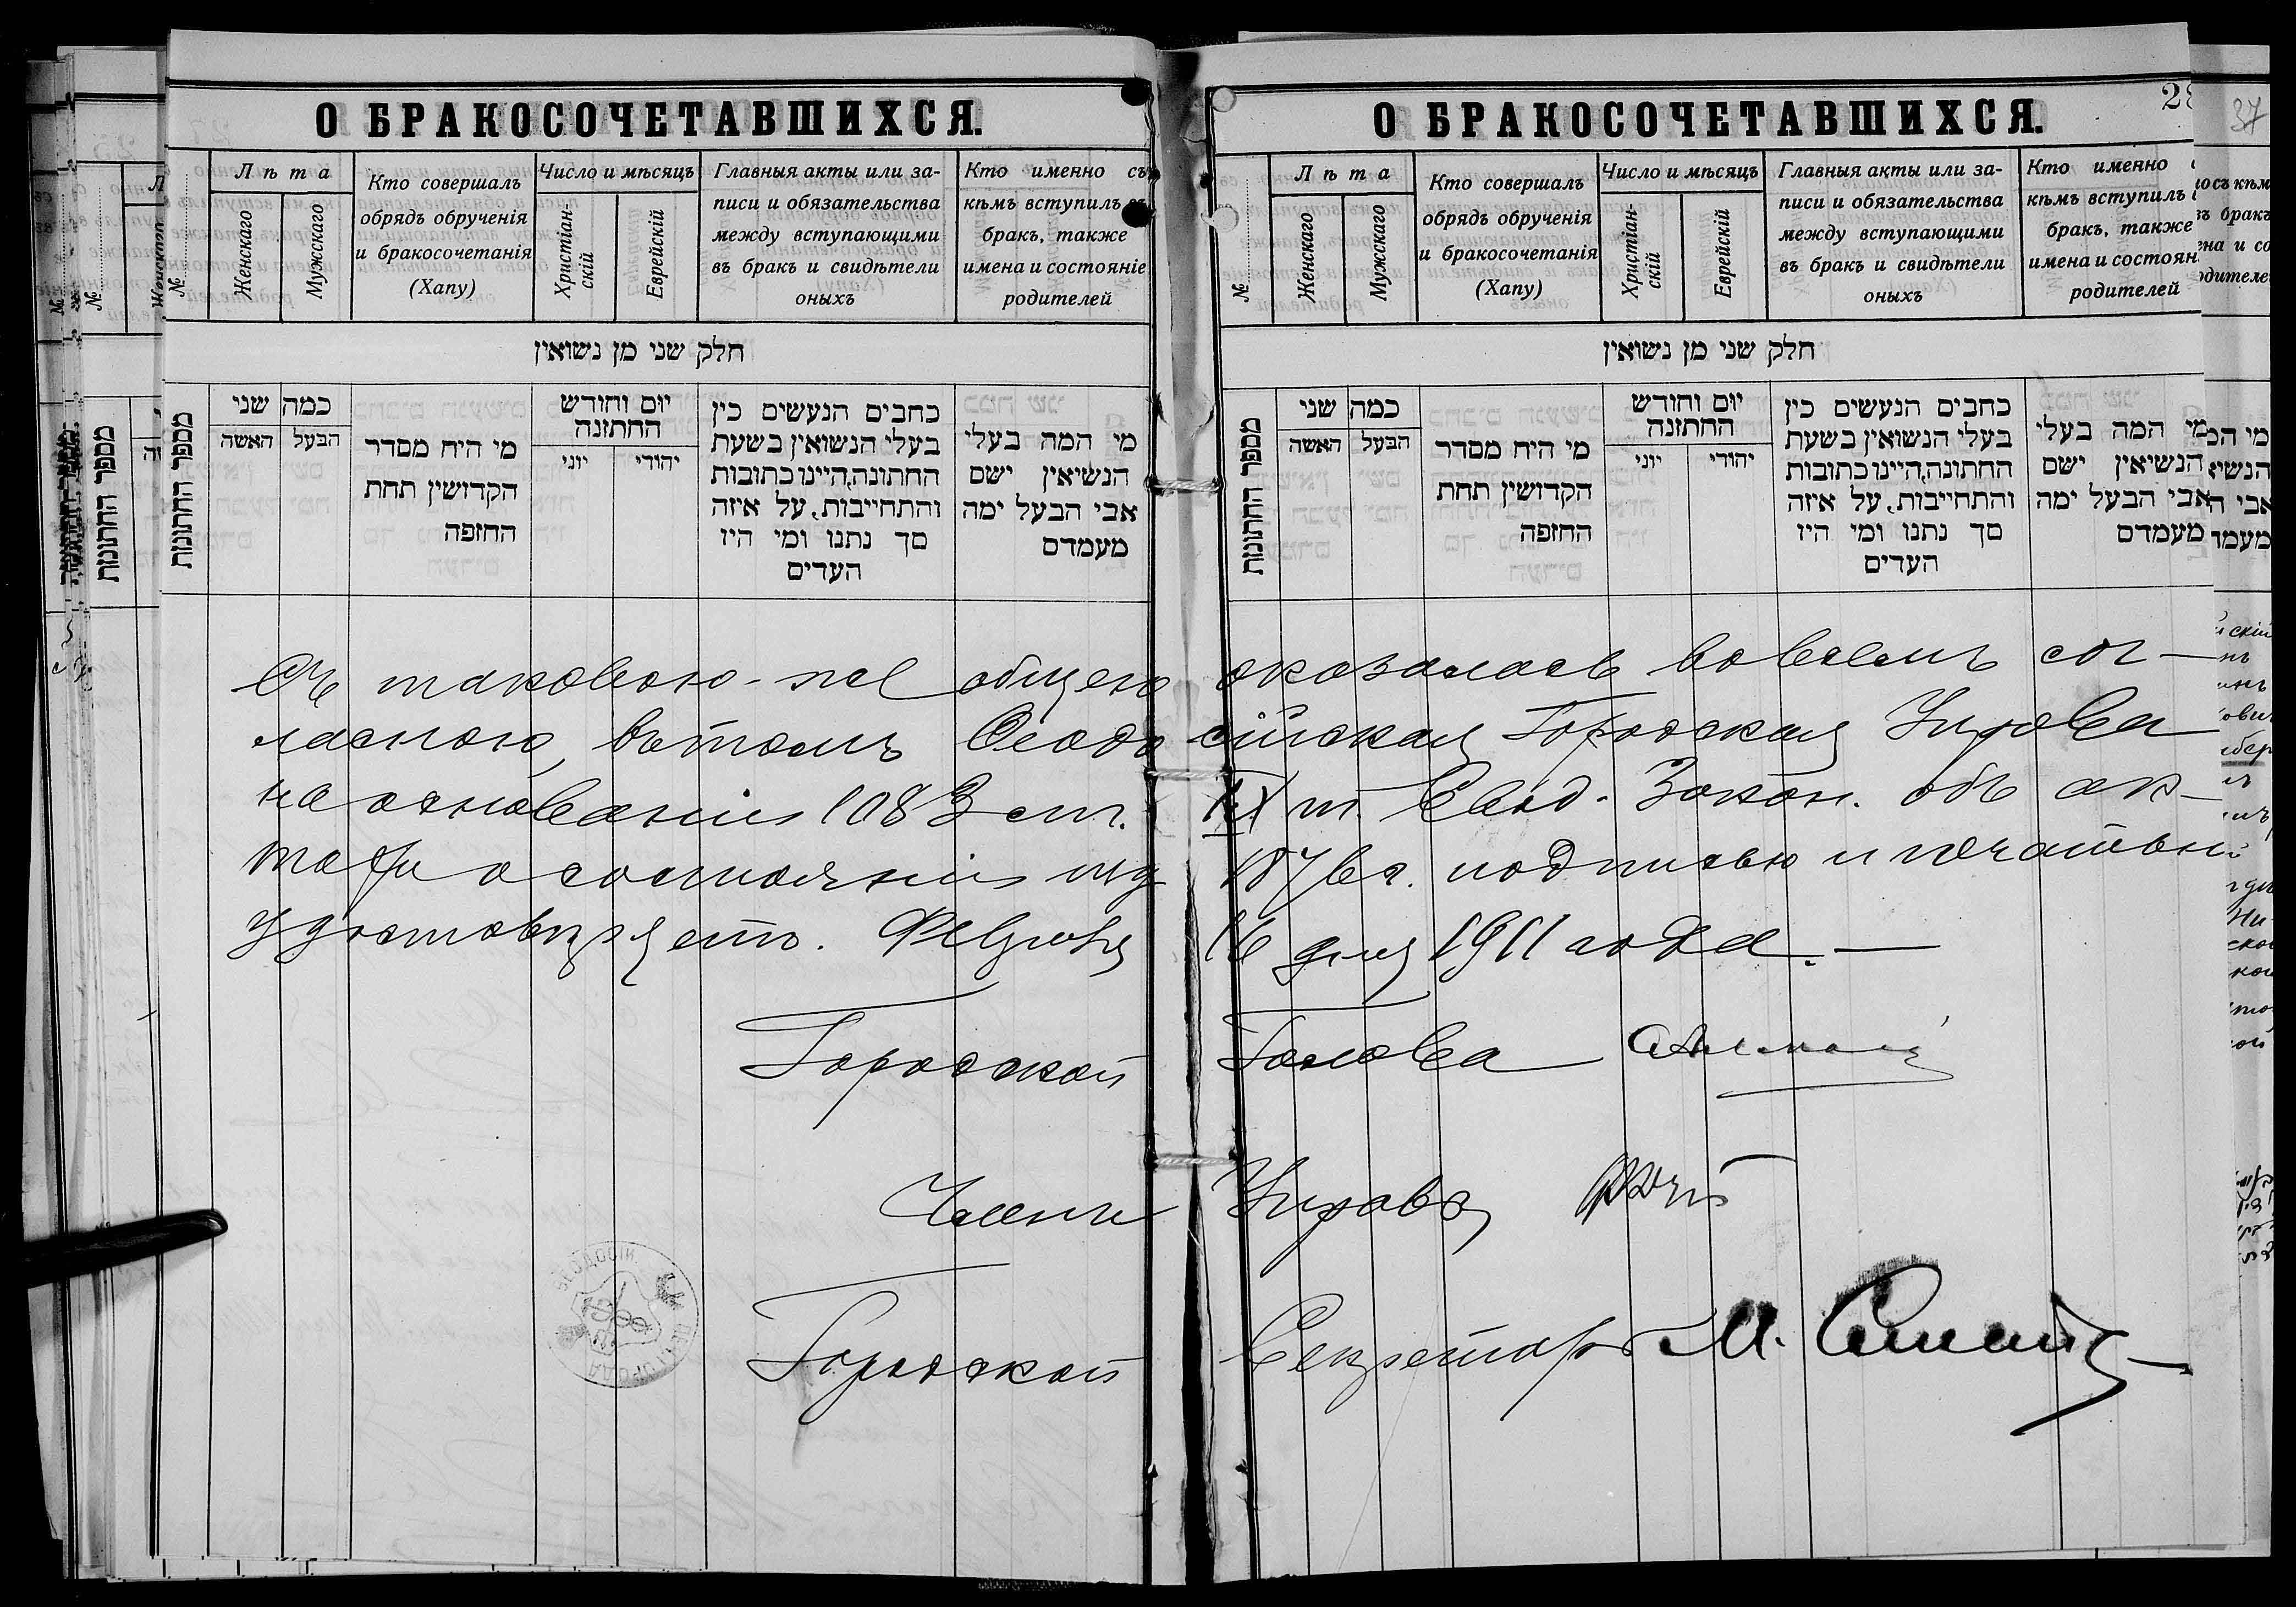 О БРАКОСОЧЕТАВШИХСЯ.
№
Лѣта
Женскаго
Мужскаго
Кто совершалъ
обрядъ обрученія
и бракосочетанія
(Хапу)
Число и мѣсяцъ
Христіан-
скій
Еврейскій
Главныя акты или за-
писи и обязательства
между вступающими
въ бракъ и свидѣтели
оныхъ
Кто именно съ
кѣмъ вступилъ въ
бракъ, также
имена и состояніе
родителей
חלק שני מן נשואין
מספר החתונות
כמה שני
הבעל האשה
מי היח מסדר
הקדושין תחת
החזפה
יום וחודש
החתזנה
יהודי יוני
כחבים הנעשים כין
בעלי הנשואין בשעת
החתונה, היינו כתובות
והתחייבות, על איזה
סך נתנו ומי היז
העדים
מי המה בעלי
הנשיאין ישם
אבי הבעל ימה
מעמדם
О БРАКОСОЧЕТАВШИХСЯ.
28
37
№
Лѣта
Женскаго
Мужскаго
Кто совершалъ
обрядъ обрученія
и бракосочетанія
(Хапу)
Число и мѣсяцъ
Христіан-
скій
Еврейскій
Главныя акты или за-
писи и обязательства
между вступающими
въ бракъ и свидѣтели
оныхъ
Кто именно
кѣмъ вступилъ
бракъ, также
имена и состоян
родителей
חלק שני מן נשואין
מספר החתונות
כמה שני
הבעל האשה
מי היח מסדר
הקדושין תחת
החזפה
יום וחודש
החתזנה
יהודי יוני
כחבים הנעשים כין
בעלי הנשואין בשעת
החתונה, היינו כתובות
והתחייבות, על איזה
סך נתנו ומי היז
העדים
מי המה בעלי
הנשיאין ישם
אבי הבעל ימה
מעמדם
Съ таковою-же общею оказалась во всемъ сог-
ласною, въ томъ Ѳеодосійская Городская Управа
на основаніи 1083 ст. IX т. Свод. Закон. объ ак-
тахъ о состояніи изд 1876 г. подписью и печатью
удостовѣряетъ. Февраля 16 дня 1911 года.—
Городской Голова
Членъ Управы
Городской Секретарь М.